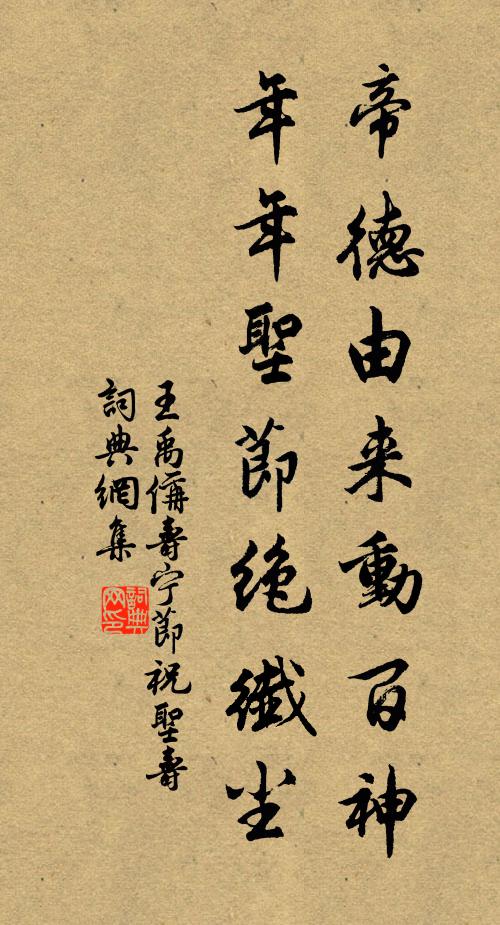 帝德由来動百神
年年聖節絶纖尘
王禹偁壽宁節祝聖壽
詞典網集
詞典
网印